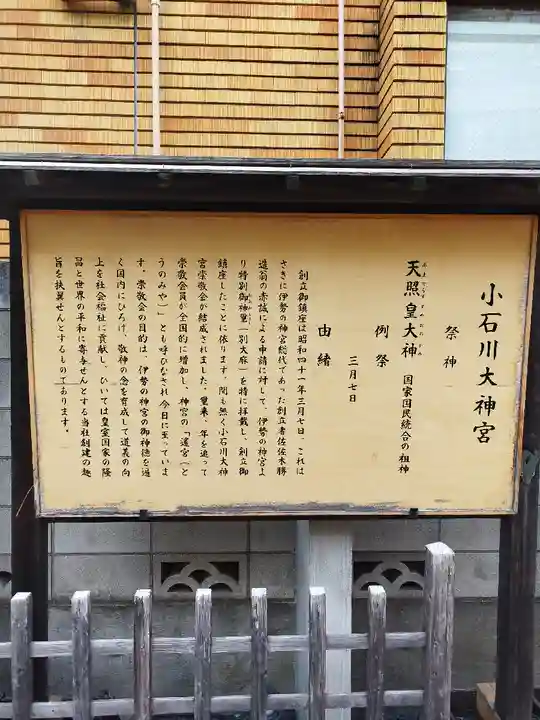 小石川大神宮
祭神
あまてらすすめおおかみ
天照皇大神 国家国民統合の祖神
例祭
三月七日
由緒
創立御鎮座は昭和四十一年三月七日、これは
さきに伊勢の神宮総代であった創立者佐佐木勝
造翁の赤誠による申請に対して、伊勢の神宮よ
り特別御神璽(別大麻)を特に拝戴し、創立御
鎮座したことに依ります。間も無く小石川大神
宮崇敬会が結成されました。爾来、年を追って
崇敬会員が全国的に増加し、神宮の「遥宮(と
うのみや)」とも呼びなされ今日に至っていま
す。崇敬会の目的は、伊勢の神宮の御神徳を遍
く国内にひろげ、敬神の念を育成して道義の向
上を社会福祉に貢献し、ひいては皇室国家の隆
昌と世界の平和に寄与せんとする当社創建の趣
旨を扶翼せんとするものであります。